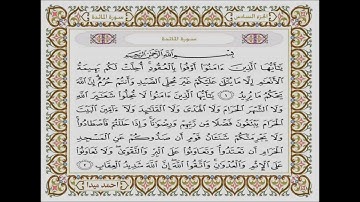 الجزء السادس
سورة المائدة
سورة المائدة
بسم الله الرحمن الرحيم
يَٰٓأَيُّهَا ٱلَّذِينَ ءَامَنُوٓا۟ أَوْفُوا۟ بِٱلْعُقُودِ أُحِلَّتْ لَكُم بَهِيمَةُ
ٱلْأَنْعَٰمِ إِلَّا مَا يُتْلَىٰ عَلَيْكُمْ غَيْرَ مُحِلِّى ٱلصَّيْدِ وَأَنتُمْ حُرُمٌ إِنَّ ٱللَّهَ
يَحْكُمُ مَا يُرِيدُ ١ يَٰٓأَيُّهَا ٱلَّذِينَ ءَامَنُوا۟ لَا تُحِلُّوا۟ شَعَٰٓئِرَ ٱللَّهِ
وَلَا ٱلشَّهْرَ ٱلْحَرَامَ وَلَا ٱلْهَدْىَ وَلَا ٱلْقَلَٰٓئِدَ وَلَآ ءَآمِّينَ ٱلْبَيْتَ
ٱلْحَرَامَ يَبْتَغُونَ فَضْلًا مِّن رَّبِّهِمْ وَرِضْوَٰنًا وَإِذَا حَلَلْتُمْ فَٱصْطَادُوا۟
وَلَا يَجْرِمَنَّكُمْ شَنَـَٔانُ قَوْمٍ أَن صَدُّوكُمْ عَنِ ٱلْمَسْجِدِ
ٱلْحَرَامِ أَن تَعْتَدُوا۟ وَتَعَاوَنُوا۟ عَلَى ٱلْبِرِّ وَٱلتَّقْوَىٰ وَلَا تَعَاوَنُوا۟
عَلَى ٱلْإِثْمِ وَٱلْعُدْوَٰنِ وَٱتَّقُوا۟ ٱللَّهَ إِنَّ ٱللَّهَ شَدِيدُ ٱلْعِقَابِ ٢
احمد عبدا